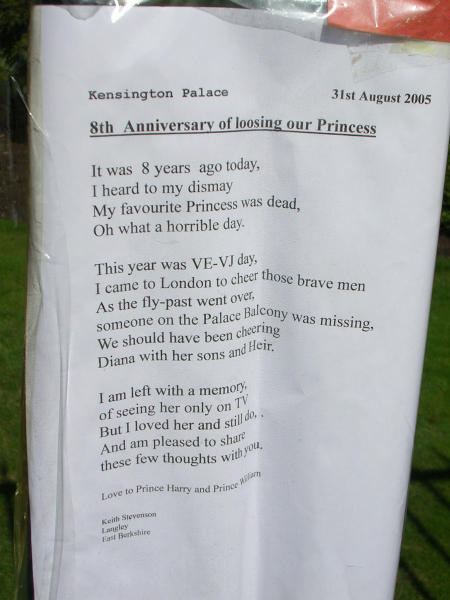 Kensington Palace 31st August 2005
8th Anniversary of loosing our Princess
It was 8 years ago today,
I heard to my dismay
My favourite Princess was dead,
Oh what a horrible day.
This year was VE-VJ day,
I came to London to cheer those brave men
As the fly-past went over,
someone on the Palace Balcony was missing,
We should have been cheering
Diana with her sons and Heir.
I am left with a memory,
of seeing her only on TV
But I loved her and still do, .
And am pleased to share
these few thoughts with you.
Love to Prince Harry and Prince William
Keith Stevenson
Langley
East Berkshire